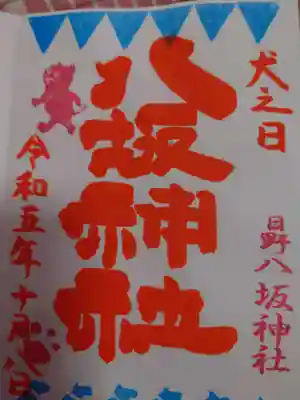 犬之日
日野八坂神社
八坂神社
令和五年十月八日